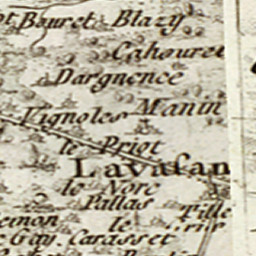 Bouret Blazy
Cahouret
Dargnence
Vignoles Manin
le Priot
Lavasan
le Norc
Pallas
Tille
le
Gay. Carasset